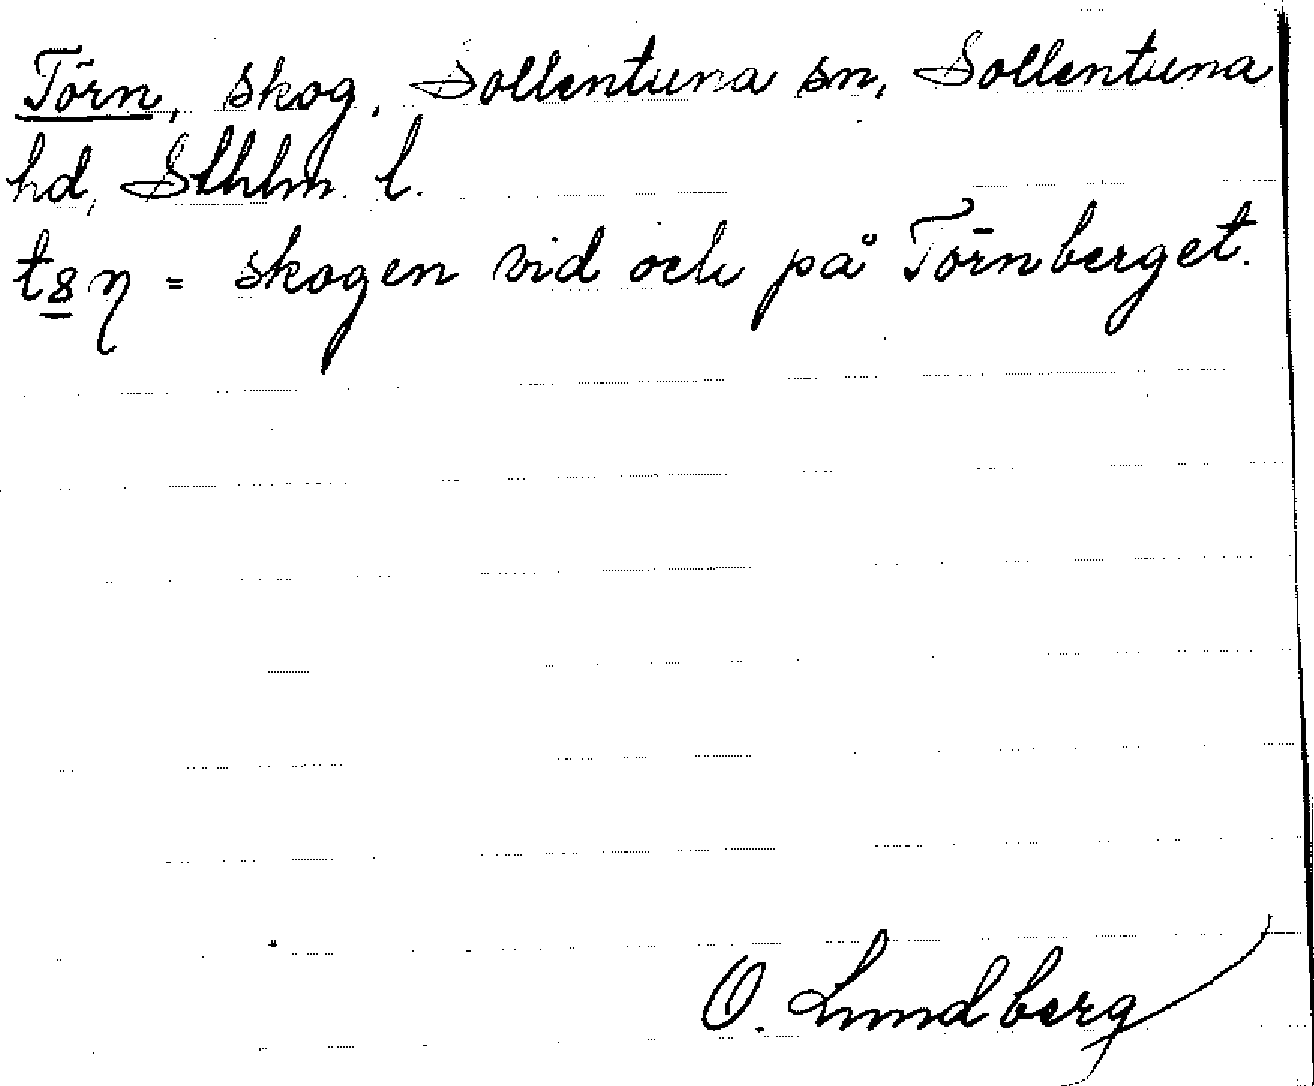 Törn, skog. Sollentuna sn, Sollentuna
hd, Sthlm. l.
= skogen vid och på Törnberget.
O. Lundberg